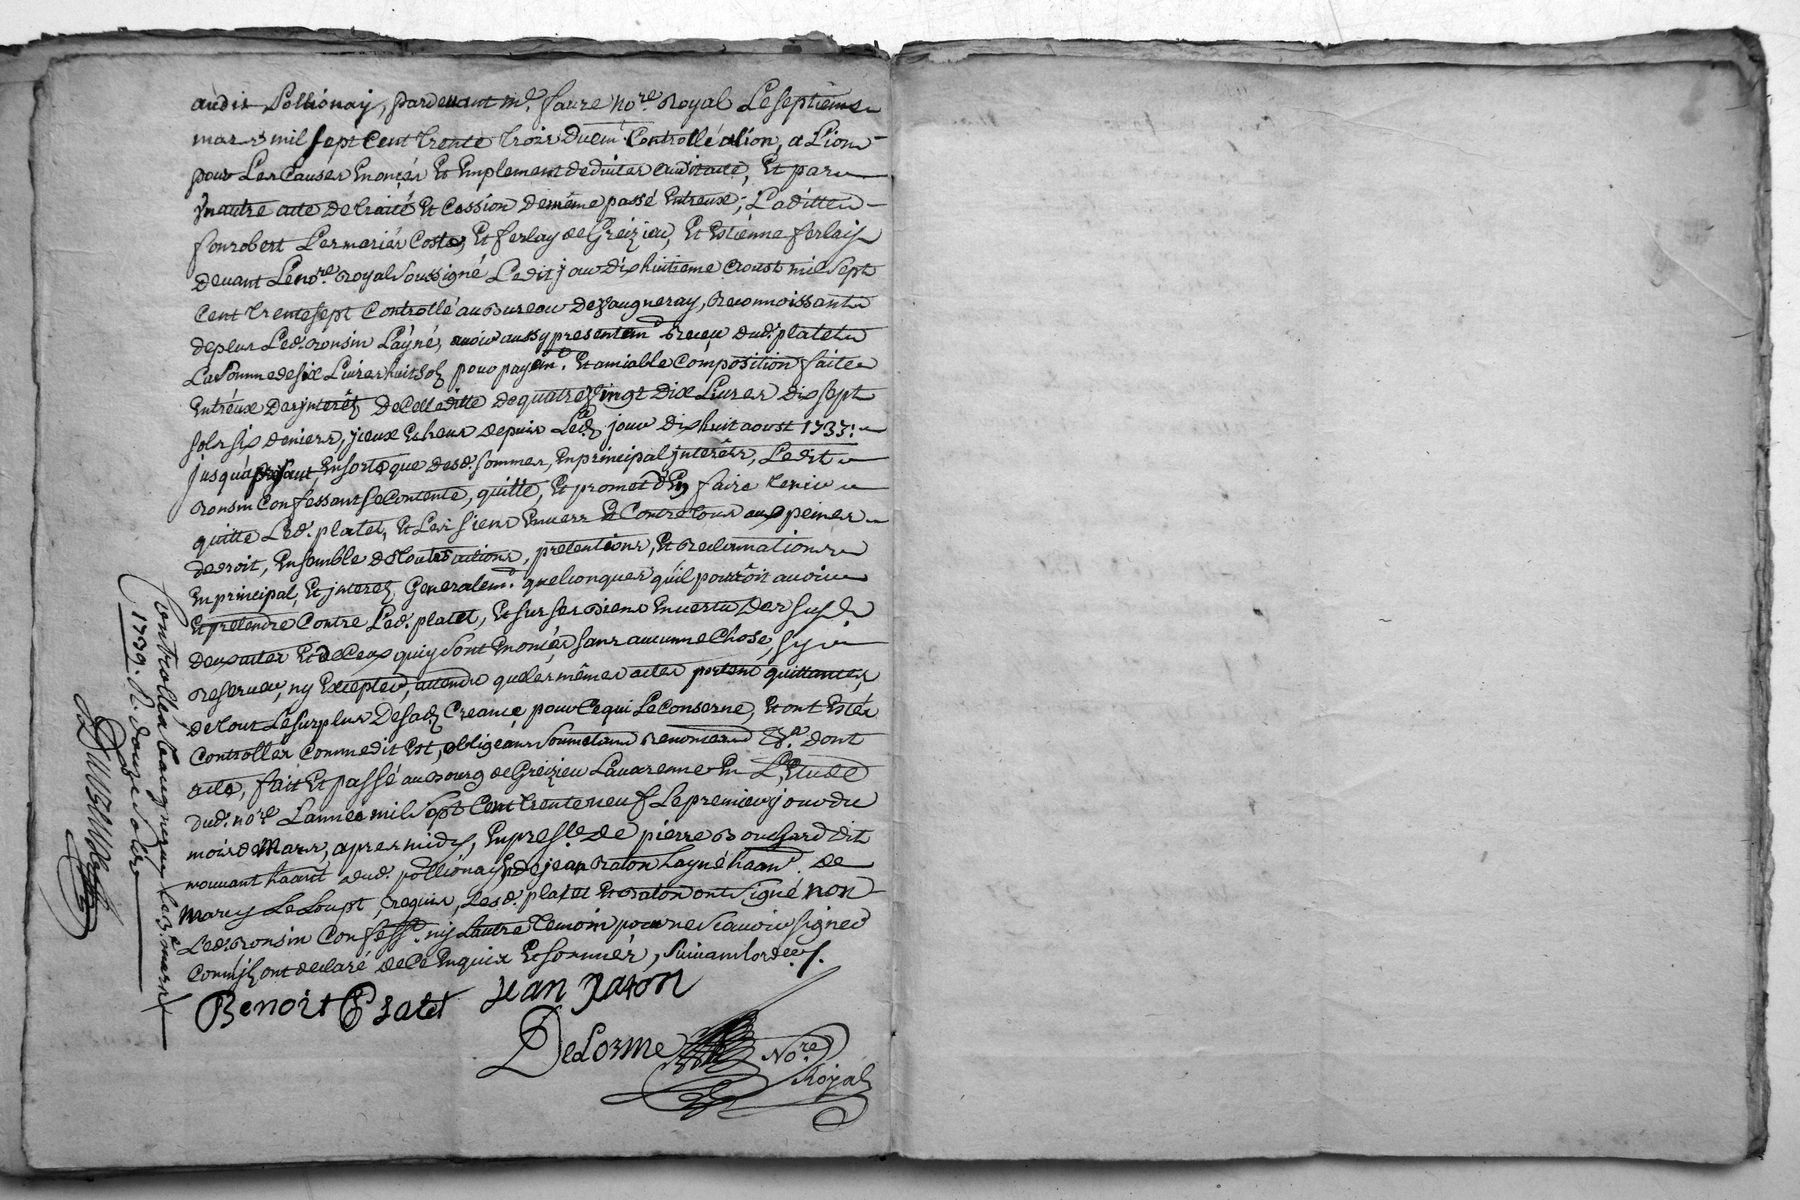 audit Pollionay, pardevant me. faure nore. Royal Le septieme
mars mil sept cent trente trois duem. Controllé a lion, a Lion
pour Les Causes Enoncés Et Emplement deduites auditacte, Et par
yn autre acte De traité Et Cession de même passé Entreux, Laditte
fourobert Les mariés Coste, Et ferlay de Greizieu, Et Estienne ferlay
devant Le nore. Royal soussigné Le dit jour dix huitieme aoust mil sept
Cent trente sept Controllé au Bureau de Vaugneray, Reconnoissant
de plus Led. Ronsin L'ayné, avoir aussy presentemt. Receu dud. platet
La somme de six Livres huit sols pour payemt. Et amiable Composition faite
Entréux Des jnterêts De Celle ditte de quatre Vingt Dix Livres Dix sept
sols six deniers, jceux Echeus depuis Led. jour Dix huit aoust 1737:
jusqu'a present, En sorte que desd. sommes, En principal jnterêts, Le dit
Ronsin Confessant se Contente, quitte, Et promet d'En faire tenir
quitte Led. platet, Et Les siens Envers Et Contre tous aux peines
de droit, Ensemble de toutes actions, pretentions, Et Reclamations
En principal, Et jnterets Generalemt. quelconques qu'il pourroit avoir
Et pretendre Contre Led. platet, Et sur ses Biens En vertu Des susd.
deux actes Et de Ceux qui y sont Enoncés sans aucunne Chose, sy
Reserver, ny Excepter, attendu que les mêmes actes portent quittances
de tout Le surplus De sad. Creance pour Ce qui Le Conserne, Et ont Estés
Controllés Comme dit Est, obligeans soumetans Renoncans &a. dont
acte, fait Et passé au Bourg de Greizieu Lavarenne En L'Etude
dud. nore. L'annee mil sept Cent trente neuf Le premier jour du
mois de Mars, apres midy, En presce. de pierre Bouchard dit
mouvant habitt aud. pollionay, Et de jean Raton Layné habt. de
Marcy Le Loupt, requis, Lesd. platet Et Raton ont signé non
Led. Ronsin Confesst. ny Lautre temoin pour ne scavoir signer
Comm'jls ont declaré de Ce Enquis Et sommés, suivant lordce.
Benoit Platet Jean Raton
Delorme Nore.
Royal
Controllé a Vaugneray le 3e mars
1739. R. douze sols